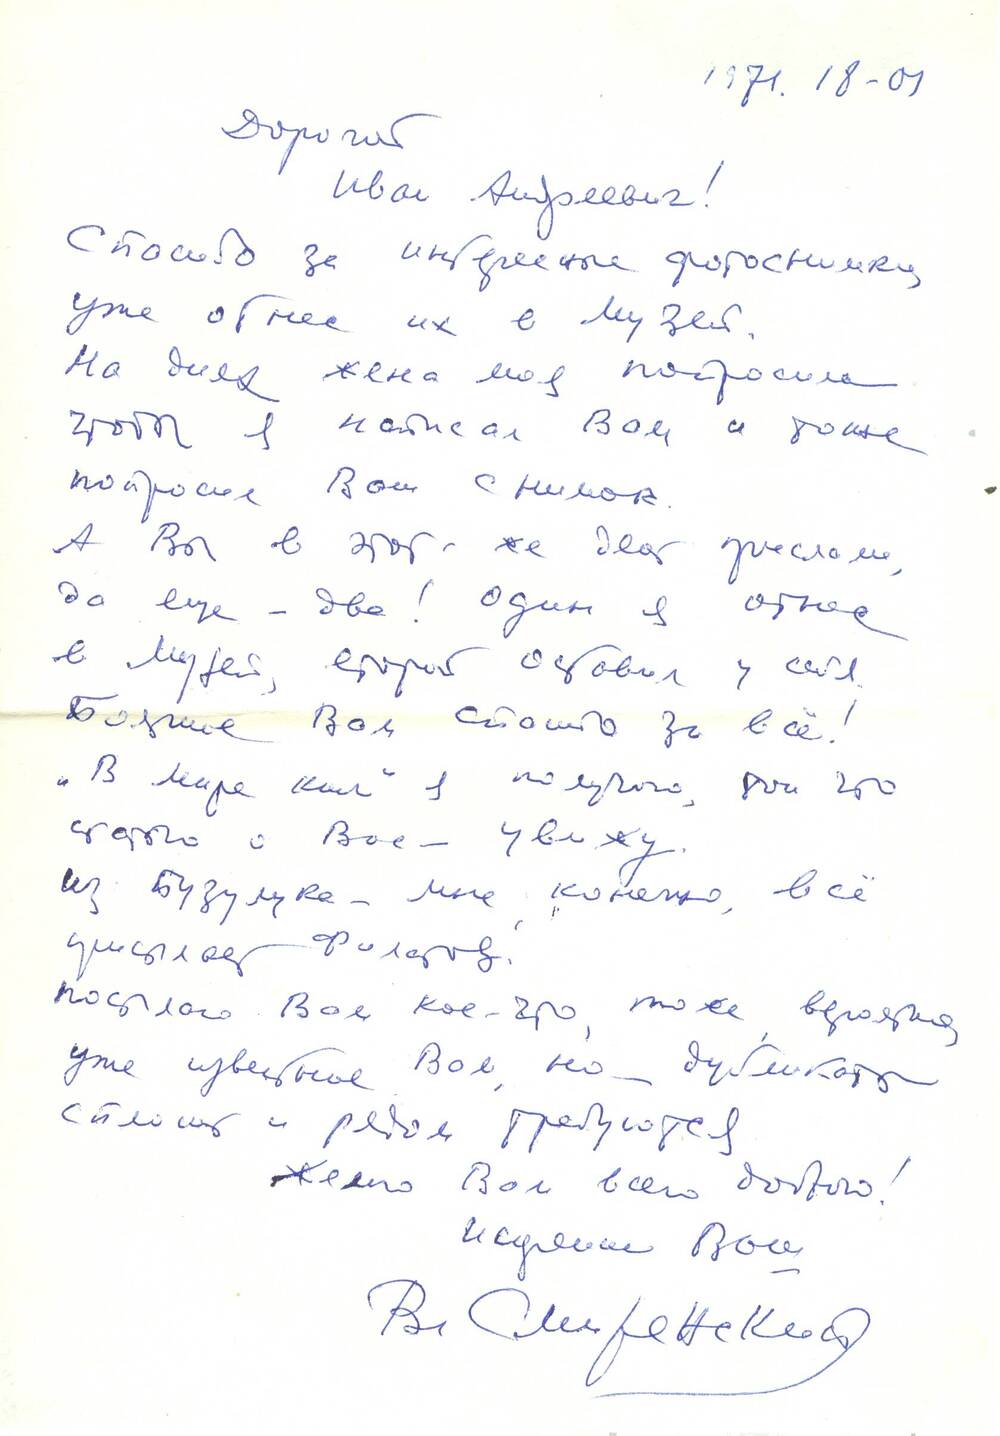 1971. 18-01
Дорогой
Иван Андреевич!
Спасибо за интересные фотоснимки
уже отнес их в музей.
На днях жена моя попросила
чтобы я написал Вам и тоже
попросил Ваш снимок.
А Вы в этот-же день прислали,
да еще – два! Один я отнес
в музей, второй оставил у себя.
Большое Вам спасибо за всё!
„В мире книг" я получаю, так что
статью о Вас – увижу.
Из Бузулука – мне, конечно, всё
присылает Филатов!
Посылаю Вам кое-что, тоже, вероятно,
уже известное Вам, но – дубликаты
сплошь и рядом требуются
Желаю Вам всего доброго!
Искренне Ваш
Вл Смиренский